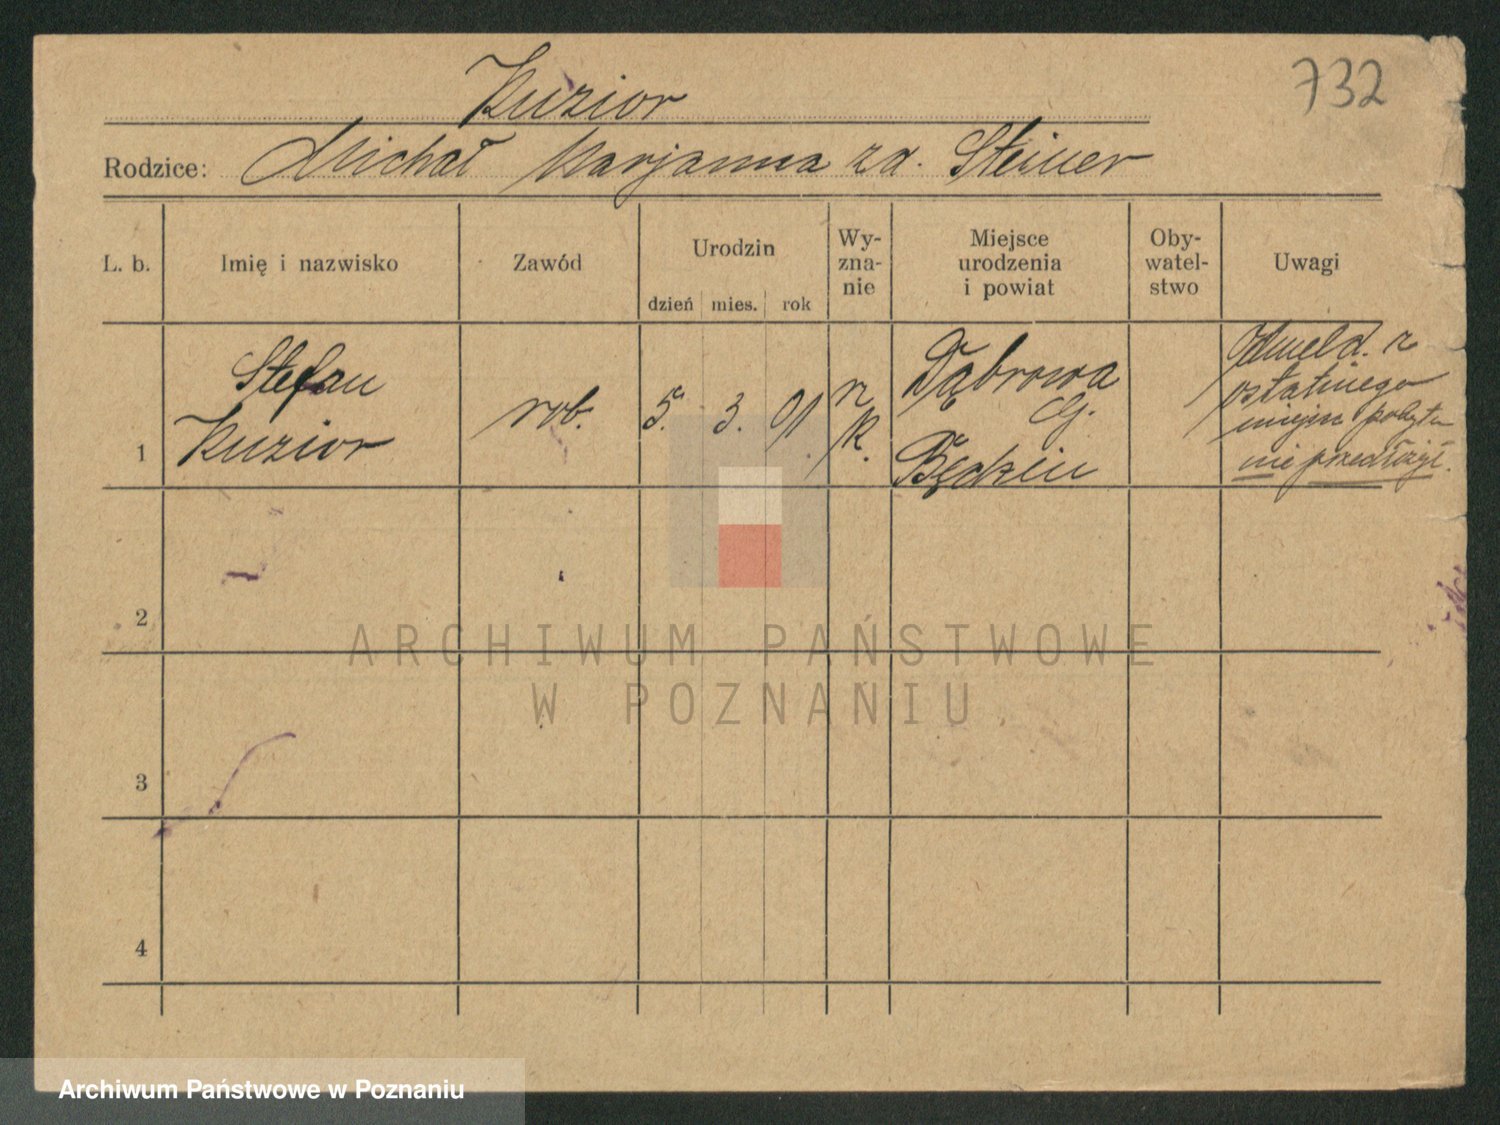 732
Kuzior
Rodzice: Michał Marjanna zd. Steiner
L. b.
Imię i nazwisko
Zawód
Urodzin
dzień mies. rok
Wy-
zna-
nie
Miejsce
urodzenia
i powiat
Oby-
watel-
stwo
Uwagi
1
Stefan
Kuzior
rob.
5. 3. 01.
rz
k.
Dąbrowa
G.
Będzin
Odmeld. z
ostatniego
miejsc pobytu
nie przedłożył.
2
3
4
ARCHIWUM PAŃSTWOWE
W POZNANIU
Archiwum Państwowe w Poznaniu